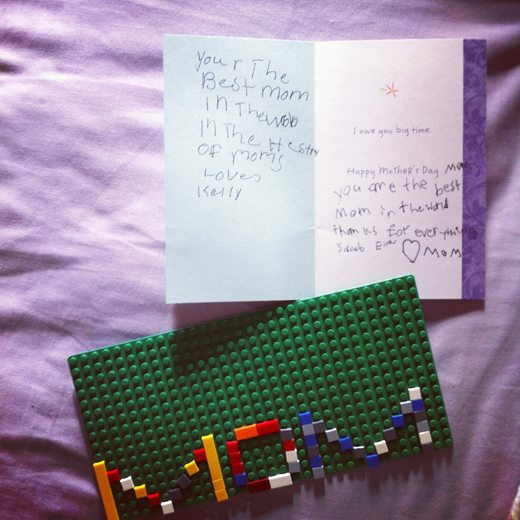 your The
Best mom
in The wob
in The Hestry
OF mom's
Loves
Kelly
I owe you big time.
Happy Mother's Day Mom
you are the best
mom in the world
thanks for everything
Jacob
♡ Mom
MOM